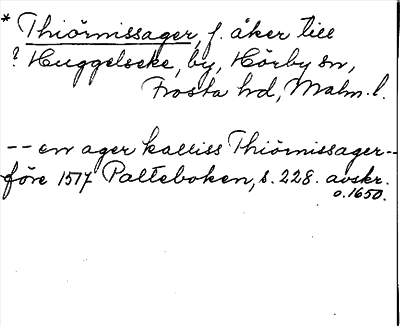 * Thiörnissager, f. åker till
? Huggelseke, by, Hörby sn,
Frosta hd, Malm. l.
-- en ager kalliss Thiörnissager--
före 1517 Palteboken, s. 228. avskr.
o. 1650.